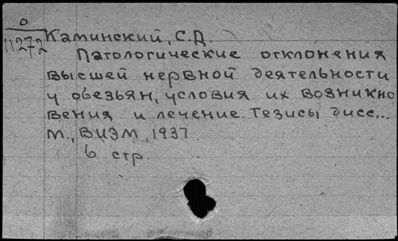 О
11272
Каминский, С.Д.
Патологические отклонения
высшей нервной деятельности
у обезьян, условия их возникно
вения и лечение. Тезисы дисс...
М., ВИЭМ, 1937
6 стр.